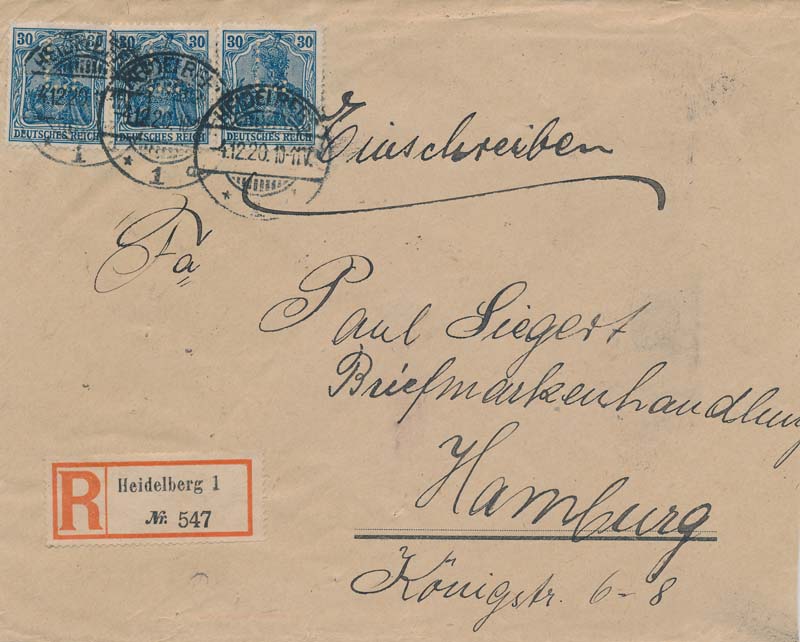 30 30 30 30
DEUTSCHES REICH DEUTSCHES REICH DEUTSCHES REICH
HEIDELBERG
4.12.20. 10-11V.
* 1
* 1 a
Einschreiben
Fa
Paul Siegert
Briefmarkenhandlung
Hamburg
Königstr. 6-8
R Heidelberg 1
Nr. 547